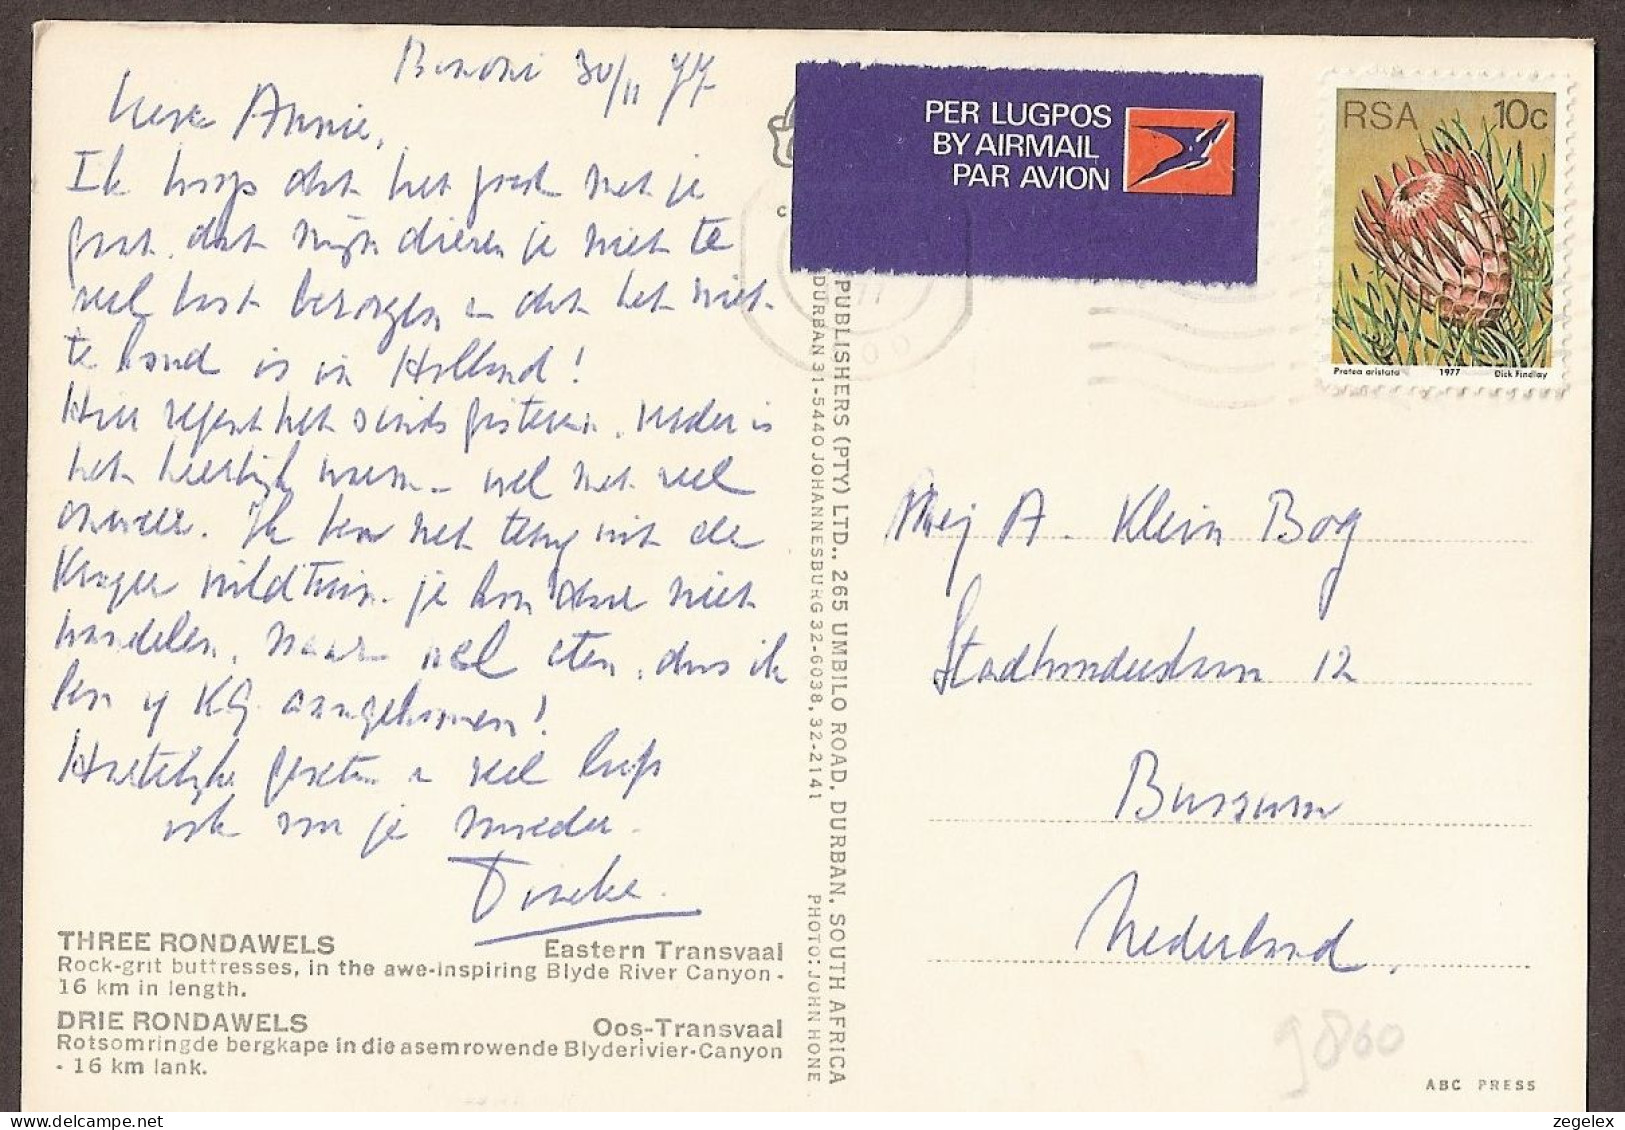 Benoni 30/11 77
Lieve Annie,
Ik hoop dat het goed met je
gaat, dat mijn dieren je niet te
veel last bezorgen en dat het niet
te koud is in Holland!
Hier regent het sinds gisteren, verder is
het heerlijk warm - wel met veel
onweer. Ik ben net terug uit de
Kruger wildtuin. je kan daar niet
wandelen, maar wel eten, dus ik
ben 4 KG. aangekomen!
Hartelijke groeten en veel liefs
ook van je moeder.
Tineke.
THREE RONDAWELS Eastern Transvaal
Rock-grit buttresses, in the awe-inspiring Blyde River Canyon -
16 km in length.
DRIE RONDAWELS Oos-Transvaal
Rotsomringde bergkape in die asemrowende Blyderivier-Canyon
- 16 km lank.
PUBLISHERS (PTY) LTD., 265 UMBILO ROAD, DURBAN, SOUTH AFRICA
DURBAN 31-5440 JOHANNESBURG 32-6038, 32-2141 PHOTO: JOHN HONE
PER LUGPOS
BY AIRMAIL
PAR AVION
RSA 10c
Protea aristata 1977 Dick Findlay
77
Mej A. Klein Bog
Stadhouderslaan 12
Bussum
Nederland.
9860
ABC PRESS
zegelex